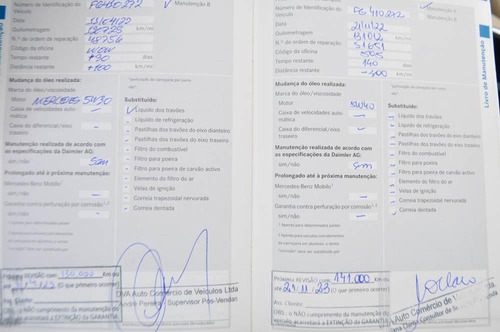 Número de Identificação do Veículo PG410272
Manutenção B
Data 13/04/22
Quilometragem 120725 km/mi
N.º de ordem de reparação 45756
Código da oficina
Tempo restante +30 dias
Distância restante +100 km/mi
Mudança do óleo realizada:
Marca do óleo/viscosidade
Motor MERCEDES 5W30
Caixa de velocidades automática —
Caixa do diferencial/eixo traseiro —
Manutenção realizada de acordo com as especificações da Daimler AG:
sim/não Sim
Prolongado até à próxima manutenção:
Mercedes-Benz Mobilo¹
sim/não —
Garantia contra perfuração por corrosão¹,²
sim/não —
Substituído:
Líquido dos travões
Líquido de refrigeração
Pastilhas dos travões do eixo dianteiro
Pastilhas dos travões do eixo traseiro
Filtro do combustível
Filtro para poeira
Filtro para poeira de carvão activo
Elemento do filtro do ar
Velas de ignição
Correia trapezoidal nervurada
Correia dentada
Próxima REVISÃO com 130.000 Km ou
(O que primeiro ocorrer)
Ass. Cliente
OBS.: o NÃO cumprimento da manutenção do
veículo acarretará a EXTINÇÃO da GARANTIA
DVA Auto Comércio de Veículos Ltda
Supervisor Pós-Vendas
Número de Identificação do Veículo PG410272
Manutenção B
Data 21/11/22
Quilometragem 131012 km/mi
N.º de ordem de reparação 51651
Código da oficina 505
Tempo restante 140 dias
Distância restante -400 km/mi
Mudança do óleo realizada:
Marca do óleo/viscosidade
Motor 5W40
Caixa de velocidades automática —
Caixa do diferencial/eixo traseiro —
Manutenção realizada de acordo com as especificações da Daimler AG:
sim/não Sim
Prolongado até à próxima manutenção:
Mercedes-Benz Mobilo¹
sim/não —
Garantia contra perfuração por corrosão¹,²
sim/não —
Substituído:
Líquido dos travões
Líquido de refrigeração
Pastilhas dos travões do eixo dianteiro
Pastilhas dos travões do eixo traseiro
Filtro do combustível
Filtro para poeira
Filtro para poeira de carvão activo
Elemento do filtro do ar
Velas de ignição
Correia trapezoidal nervurada
Correia dentada
Próxima REVISÃO com 141.000 Km ou
até 21.11.23 (O que primeiro ocorrer)
Ass. Cliente
OBS.: o NÃO cumprimento da manutenção do
veículo acarretará a EXTINÇÃO da GARANTIA
DVA Auto Comércio de
Consultor de
Livro de Manutenção